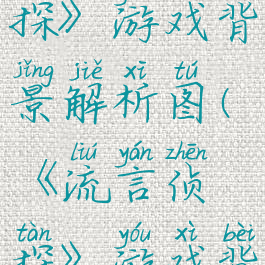 探》游戏背
jǐng jiě xī tú
景解析图(
liú yán zhēn
《流言侦
tàn yóu xì bèi
探》游戏背